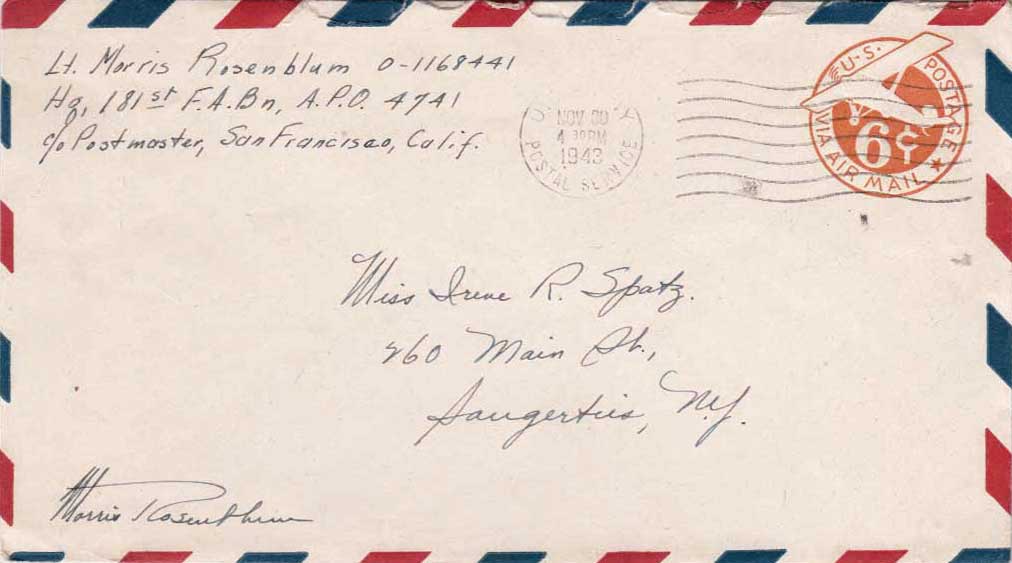 Lt. Morris Rosenblum O-1168441
Hq, 181st F.A.Bn, A.P.O. 4741
c/o Postmaster, San Francisco, Calif.
NOV 30
4 30 PM
1943
POSTAL SERVICE
U.S. POSTAGE
6¢
VIA AIR MAIL
Miss Irene R. Spatz.
260 Main St.,
Saugerties, NY.
Morris Rosenblum